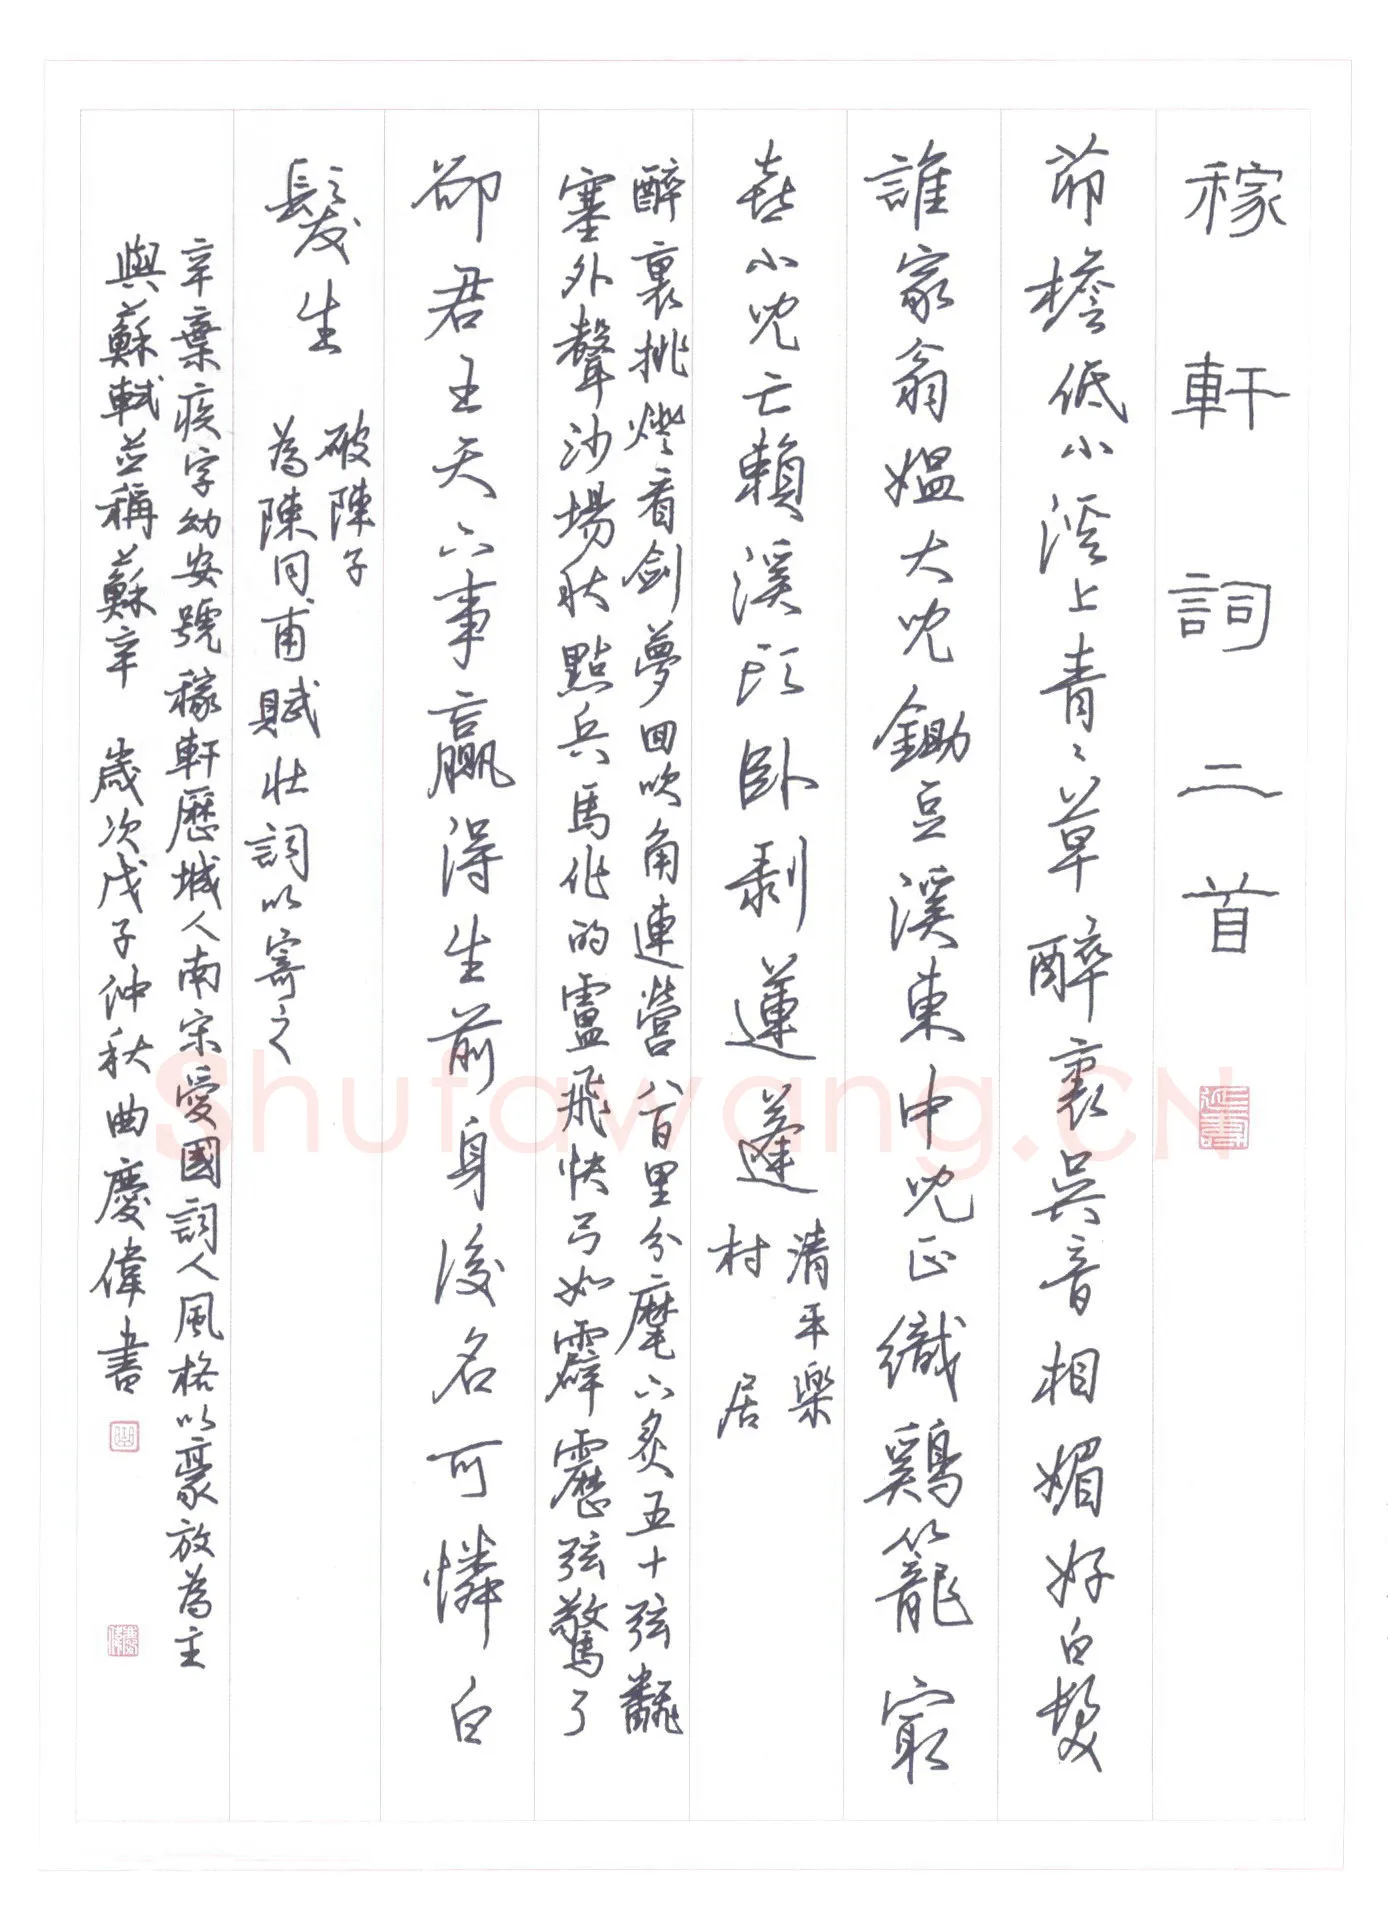 稼軒詞二首
茆檐低小溪上青々草醉裏吳音相媚好白髮
誰家翁媼大兒鋤豆溪東中兒正織鷄籠寂
喜小兒亡賴溪頭臥剥蓮蓬
清平樂
村居
醉裏挑燈看劍夢回吹角連營八百里分麾下炙五十弦翻
塞外聲沙場秋點兵馬作的盧飛快弓如霹靂弦驚了
卻君王天下事贏得生前身後名可憐白
髮生
破陣子
為陳同甫賦壯詞以寄之
辛棄疾字幼安號稼軒歷城人南宋愛國詞人風格以豪放為主
與蘇軾並稱蘇辛 歲次戊子仲秋曲慶偉書
Shufawang.CN